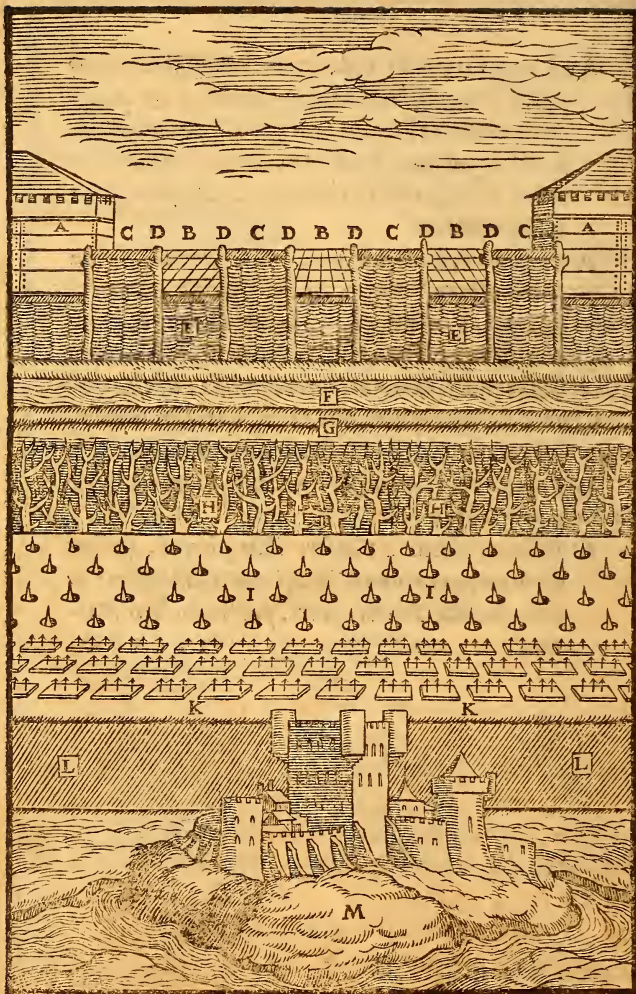 A C D B D C D B D C D B D C A
E E
F
G
H H
I I
K K
L L
M